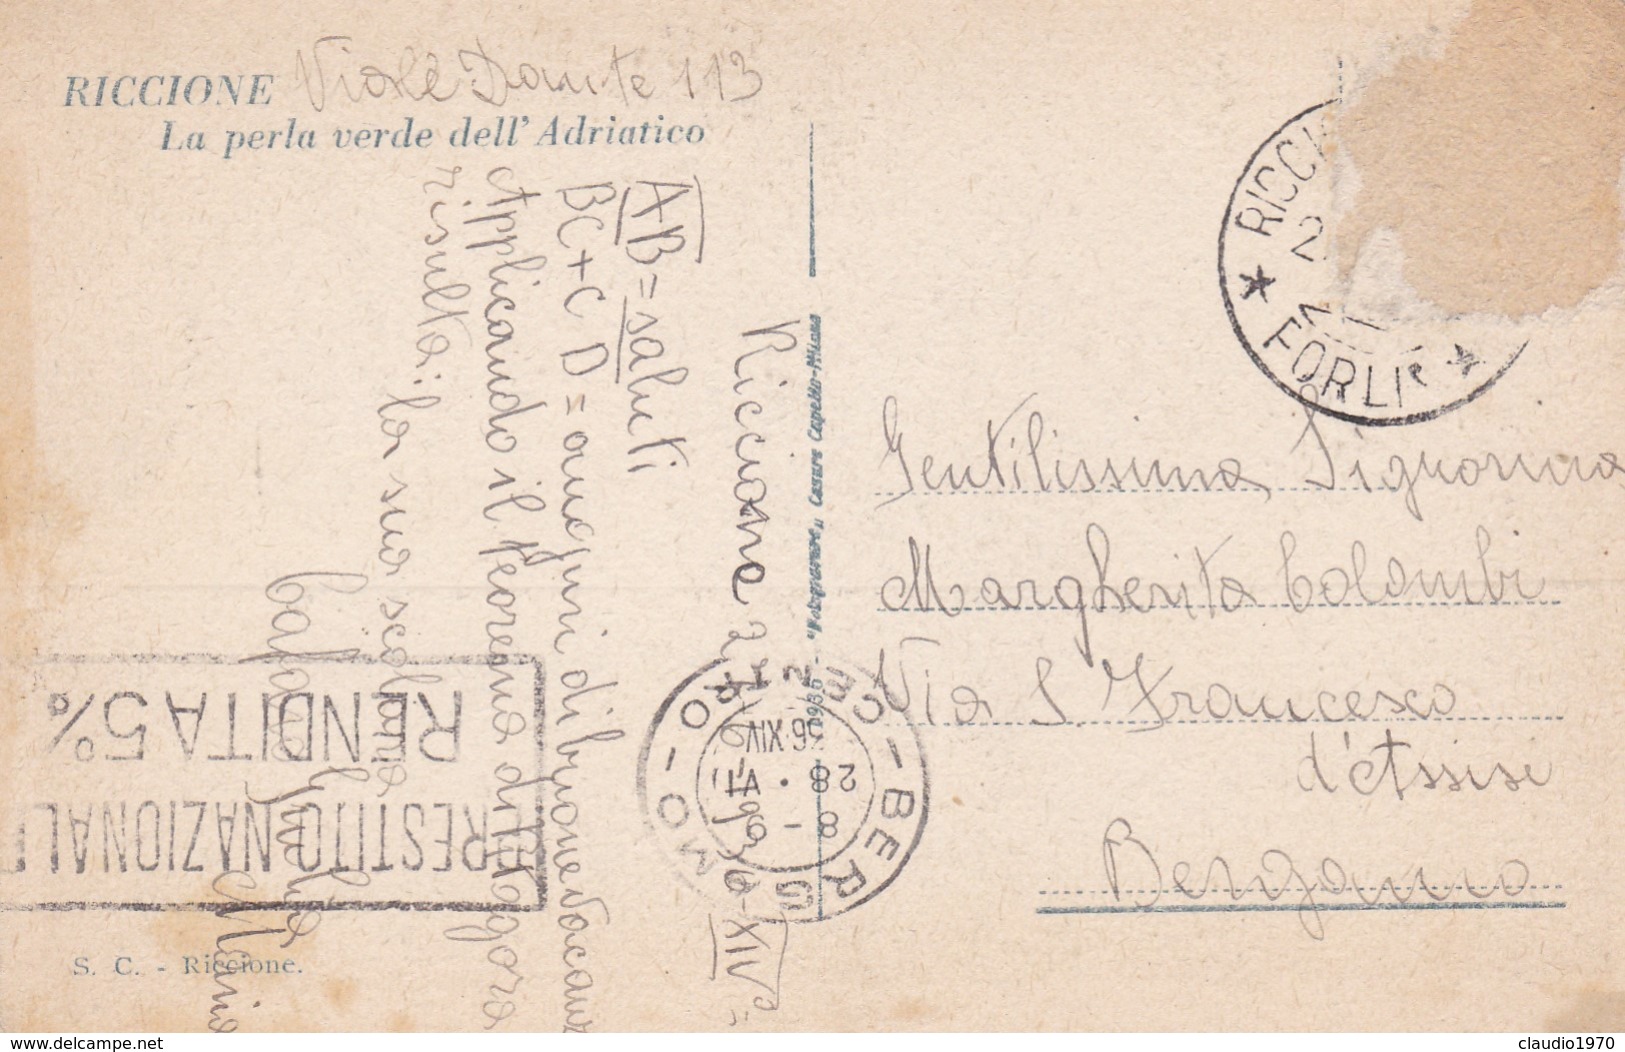 RICCIONE Viale Dante 113
La perla verde dell' Adriatico
Riccione 1936-XIV°=
AB = saluti
BC + CD = auguri di buone vacanz
Applicando il teorema di Pitagora
risulta: la sua scolara
Giulia
Maria
S. C. - Riccione.
Cesare Capello-Milano
1936
RICCI
2
FORLI'
BERGAMO - CENTRO
8 -
28 · VII
36·XIV
PRESTITO NAZIONALE
RENDITA 5%
Gentilissima Signorina
Margherita Colombi
Via S. Francesco
d'Assisi
Bergamo
www.delcampe.net
claudio1970